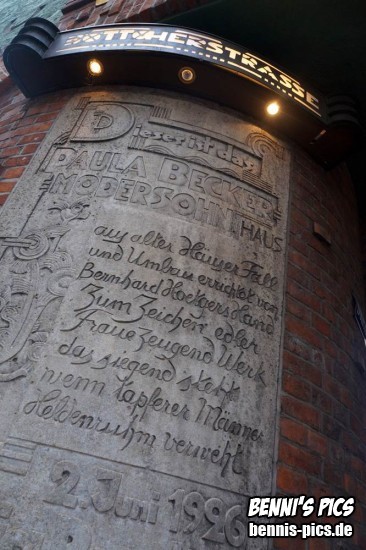 BÖTTCHERSTRASSE
Dieses ist das
PAULA BECKER
MODERSOHN HAUS
aus alter Häuser Fall
und Umbau errichtet von
Bernhard Hoetgers Hand
Zum Zeichen edler
Fraue zeugend Werk
das siegend steht
wenn tapferer Männer
Heldenruhm verweht
2. Juni 1926
BENNI'S PICS
bennis-pics.de